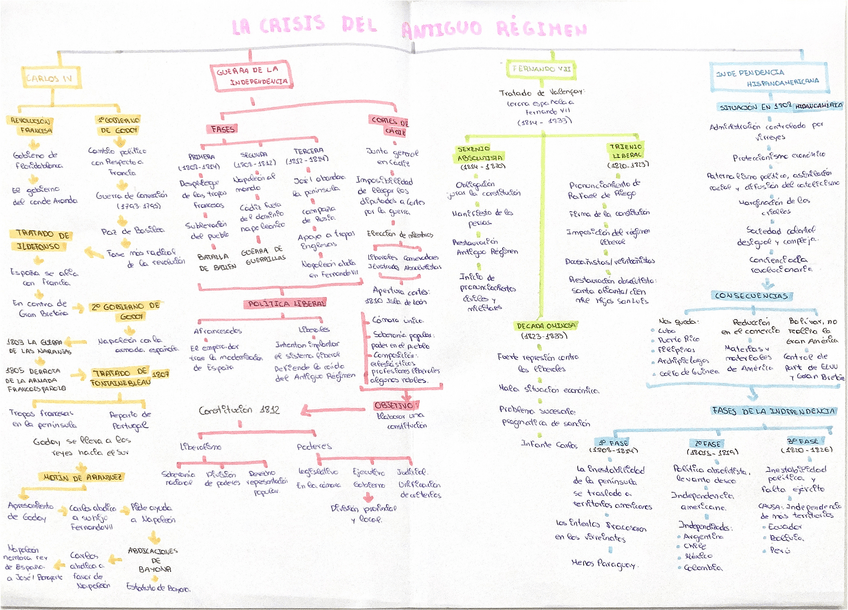 LA CRISIS DEL ANTIGUO RÉGIMEN
CARLOS IV
REVOLUCIÓN
FRANCESA
Gobierno de
Floridablanca
El gobierno
del conde Aranda
1º GOBIERNO
DE GODOY
Cambio político
con Respecto a
Francia
Guerra de Convención
(1793-1795)
Paz de Basilea
Fase más radical
de la revolución
TRATADO DE
ILDEFONSO
España se alía
con Francia
En contra de
Gran Bretaña
2º GOBIERNO DE
GODOY
1803 LA GUERRA
DE LAS NARANJAS
Napoleón con la
armada española
1805 DERROTA
DE LA ARMADA
FRANCOESPAÑOLA
TRATADO DE 1807
FONTAINEBLEAU
Tropas francesas
en la península
Reparto de
Portugal
Godoy se lleva a los
reyes hacia el sur
MOTÍN DE ARANJUEZ
Apresamiento
de Godoy
Carlos abdica
a su hijo
Fernando VII
Pide ayuda
a Napoleón
ABDICACIONES
DE
BAYONA
Carlos
abdica a
favor de
Napoleón
Napoleón
nombra rey
de España
a José I Bonaparte
Estatuto de Bayona
GUERRA DE LA
INDEPENDENCIA
FASES
PRIMERA
Despliegue
de las tropas
francesas
Sublevación
del pueblo
BATALLA
DE BAILEN
SEGUNDA
(1808-1812)
Napoleón al
mando
Cádiz fuera
del dominio
napoleónico
GUERRA DE
GUERRILLAS
TERCERA
(1812-1814)
José I abandona
la península
campaña
de Rusia
Apoyo a tropas
Inglesas
Napoleón abdica
en Fernando VII
CORTES DE
CÁDIZ
Junta general
en Cádiz
Imposibilidad
de llegar los
diputados a Cortes
por la guerra
Elección de
Liberales
Apertura cortes
1810 Isla de León
Cámara única
Soberanía popular
poder en el pueblo
Composición:
profesiones liberales
algunos nobles.
OBJETIVO
Elaborar una
constitución
POLÍTICA LIBERAL
Afrancesados
El emperador
trae la modernización
de España
Liberales
Intentan implantar
el sistema liberal
Defiende la caída
del Antiguo Régimen
Constitución 1812
Liberalismo
Soberanía
nacional
División
de poderes
Derecho
representación
popular
Poderes
Legislativo
En la cámara
Ejecutivo
Gobierno
Judicial
Unificación
de criterios
División provincial
y local.
FERNANDO VII
Tratado de Valençay:
corona española a
Fernando VII
(1814-1833)
SEXENIO
ABSOLUTISTA
(1814-1820)
Obligación
jurar la constitución
Manifiesto de los
persas
Restauración
Antiguo Régimen
Inicio de
pronunciamientos
civiles y
militares
TRIENIO
LIBERAL
(1820-1823)
Pronunciamiento de
Rafael de Riego
Firma de la constitución
Imposición del régimen
liberal
Restauración absolutista:
santa alianza
DÉCADA OMINOSA
(1823-1833)
Fuerte represión contra
los liberales
Mala situación económica.
Problema sucesorio:
pragmática de sanción
Infante Carlos
INDEPENDENCIA
HISPANOAMERICANA
SITUACIÓN EN 1808
Administración controlada por
virreyes
Proteccionismo económico
Paternalismo político, asimilación
social y difusión del catolicismo
Marginación de los
criollos
Sociedad colonial
desigual y compleja.
Conciencia de la
revolucionaria.
CONSECUENCIAS
Nos queda:
• Cuba
• Puerto Rico
• Filipinas
• Archipiélagos
• Costa de Guinea
Reducción
en el comercio
Materias y
materiales
de América
Bolívar, no
realiza la
Gran América
Control de
parte de EEUU
y Gran Bretaña
FASES DE LA INDEPENDENCIA
1ª FASE
(1808-1814)
La inestabilidad
de la península
se traslada a
territorios americanos
Los Intentos fracasaron
en los virreinatos
Menos Paraguay.
2ª FASE
Política absolutista,
levanta deseo
Independencia
americana.
Independizada:
• Argentina
• Chile
• México
• Colombia.
3ª FASE
Inestabilidad
política, y
falta ejército
CAUSA: Independencia
de más territorios
• Ecuador
• Bolivia.
• Perú